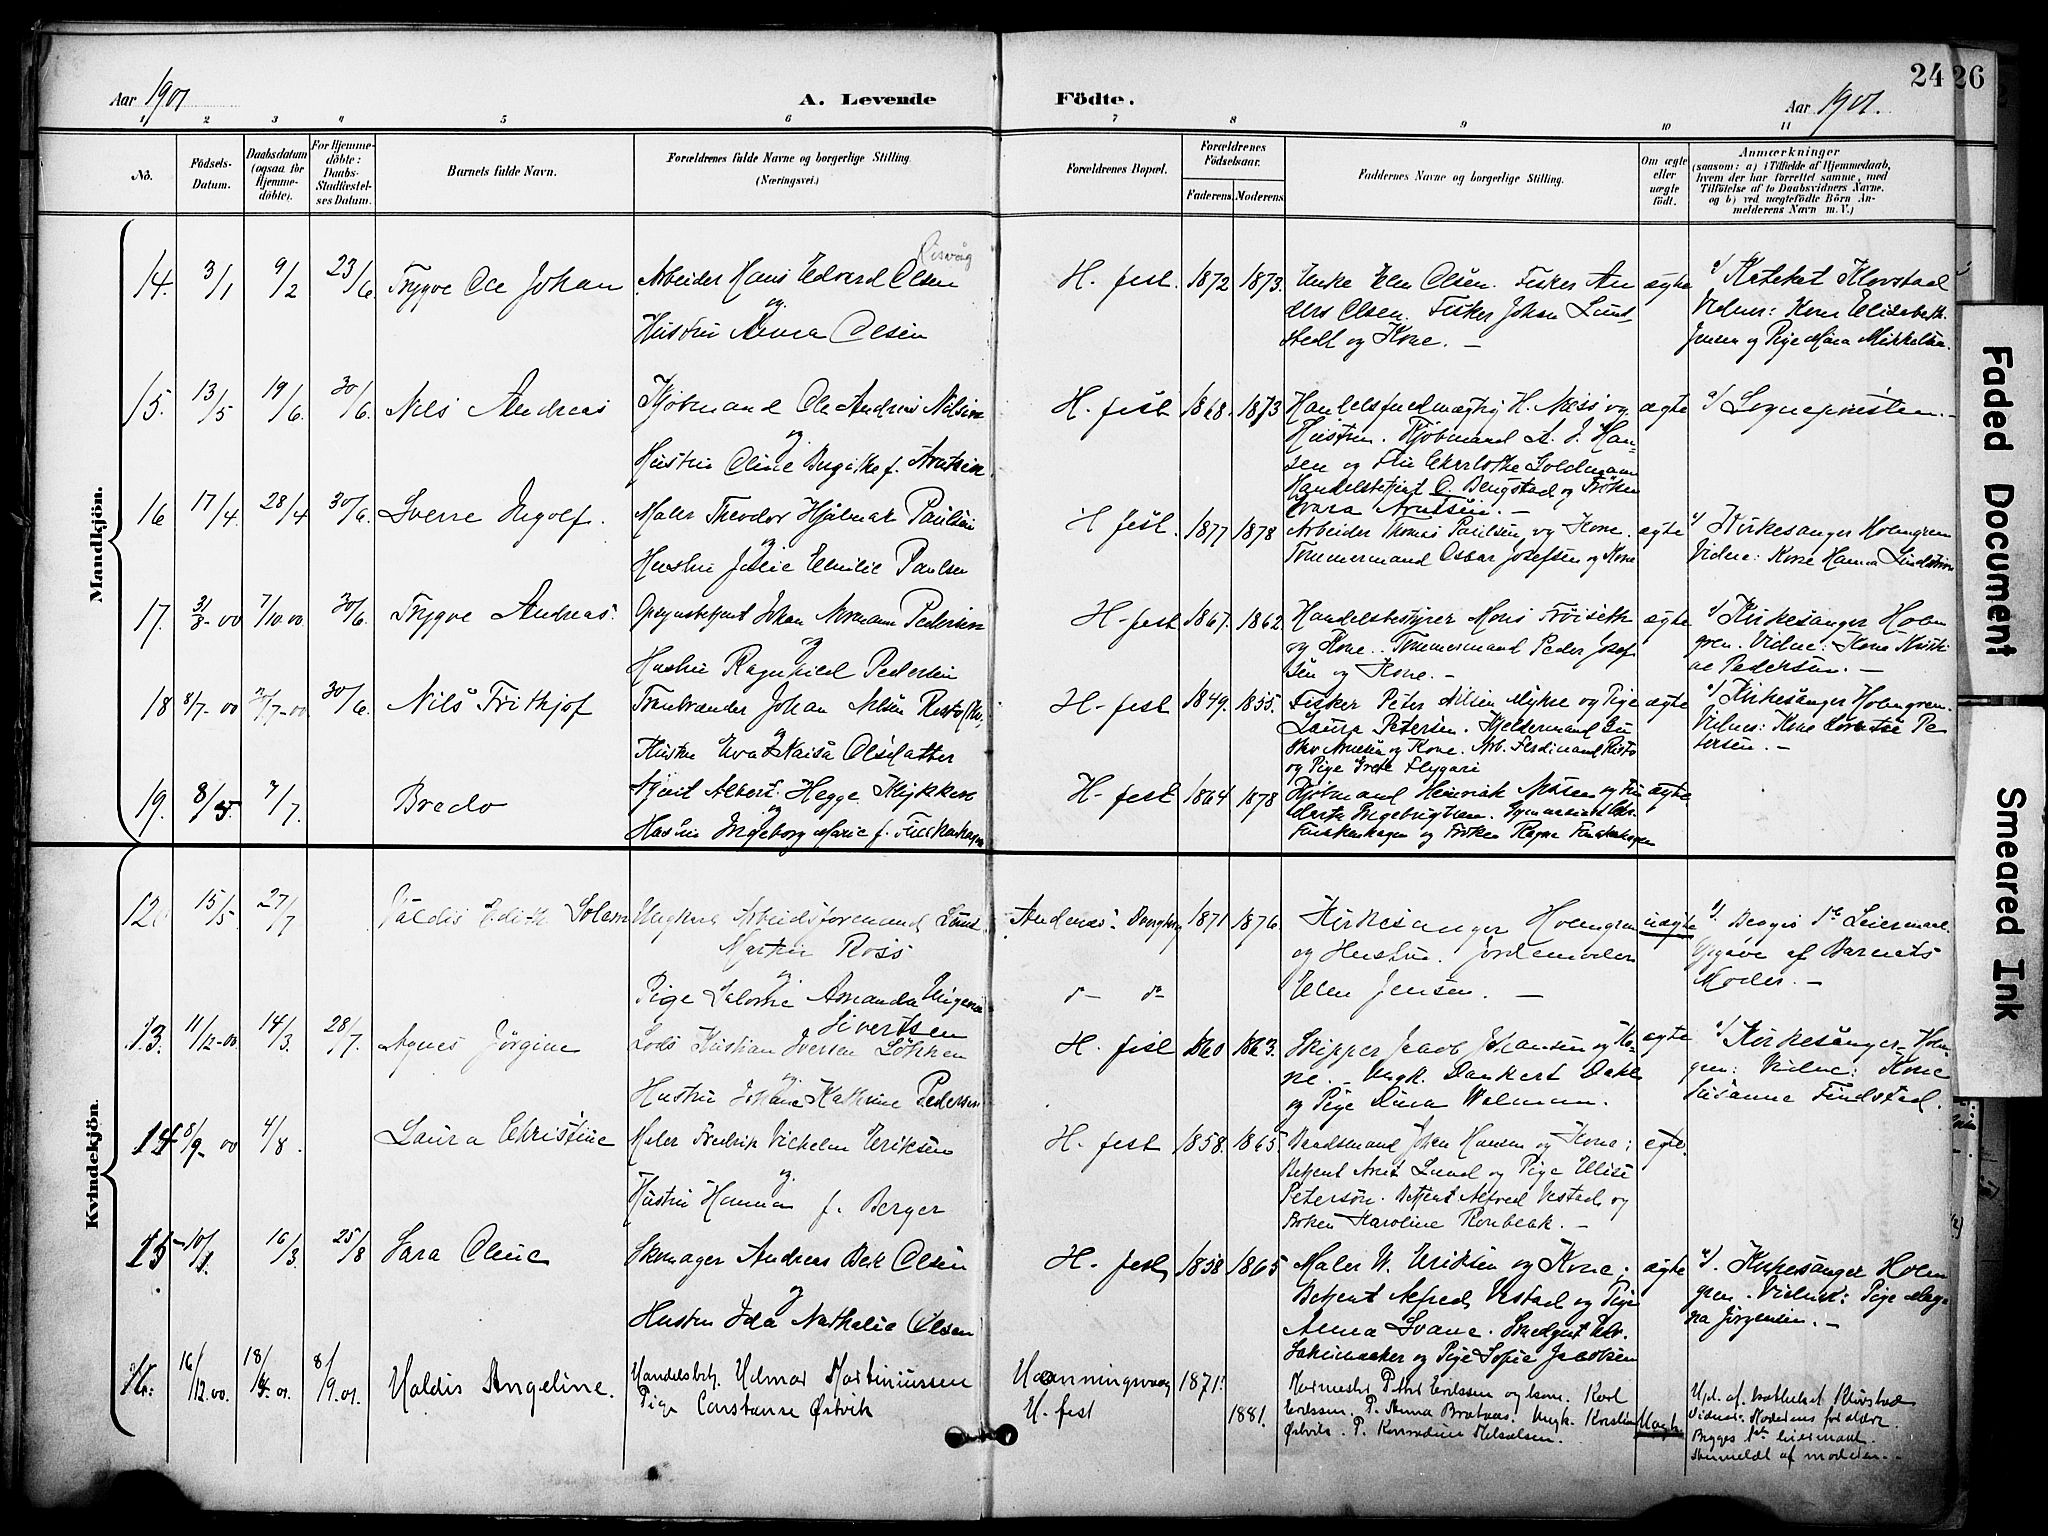 24 26
Aar 1901
A. Levende Födte.
Aar 1901.
1 2 3 4 5 6 7 8 9 10 11
No.
Födsels-
Datum.
Daabsdatum
(ogsaa for
Hjemme-
döbte).
For Hjemme-
döbte:
Daabs-
Stadfæstel-
ses Datum.
Barnets fulde Navn.
Forældrenes fulde Navne og borgerlige Stilling.
(Næringsvei.)
Forældrenes Bopæl.
Forældrenes
Födselsaar.
Faderens. Moderens.
Faddernes Navne og borgerlige Stilling.
Om ægte
eller
uægte
födt.
Anmærkninger
(saasom: a) i Tilfælde af Hjemmedaab,
hvem der har forrettet samme, med
Tilföielse af to Daabsvidners Navne,
og b) ved uægtefödte Börn An-
melderens Navn m. V.)
Mandkjön.
14. 3/1 9/2 23/6 Trygve Ole Johan
Arbeider Hans Edvard Olsen
og
Hustru Anna Olsen
H. fest. 1872 1873.
Enke Elen Olsen. Fisker An
ders Olsen. Fisker Johan Lund
stedt og Kone. —
ægte
a/ Kateket Klovstad
Vidner: Kone Elisabeth
Jensen og Pige Mina Mikkelsen.
15. 13/5 19/6. 30/6. Nils Andreas
Kjøbmand Ole Andreas Nilsen
og
Hustru Oline Birgitte f. Arntsen
H. fest 1868. 1873
Handelsfuldmægtig H. Næss og
Hustru. Kjøbmand A. J. Han-
sen og Fru Charlotte Goldmann
Handelsbetjent O. Bengstad og Frøken
Sara Arntsen. —
ægte
a/ Sognepresten. —
16 17/4. 28/4 30/6. Sverre Ingolf.
Maler Theodor Hjalmar Paulsen
og
Hustru Julie Emilie Paulsen
H. fest. 1877 1878
Arbeider Thomas Paulsen og Kone.
Tømmermand Oscar Josefsen og Kone
ægte
a/ Kirkesanger Holmgren
Vidne: Kone Hanna Lindstrøm
17. 31/8-00 7/10 00 30/6. Trygve Andreas.
Opsynsbetjent Johan Normann Pedersen
og
Hustru Ragnhild Pedersen
H. fest 1867. 1862
Handelsbestyrer Mons Frøiseth
og Kone. Tømmermand Peder Josef
sen og Kone. —
ægte
a/ Kirkesanger Holm
gren. Vidne: Kone Kristi
ne Pedersen. —
18 8/7-00 30/6. Nils Frithjof
Tranbrænder Johan Nilsen
og
Hustru Eva Olsdatter
H. fest 1849. 1855.
Fisker Peter Nilsen Mykre og Pige
Laura Petersen. Kjeldermand Gu
stav Nielsen og Kone. Arb. Ferdinand Risto
og Pige Grete Flygari
ægte
a/ Kirkesanger Holmgren.
Vidner: Kone Lorentse Pe
tersen. —
19. 8/5. 7/7. Bredo
Agent Albert Hegge Klykken
og
Hustru Ingeborg Marie f. Finckenhagen
H. fest 1864 1878
Kjøbmand Henrik Nissen og Fru
Marta Ingebrigtsen.
Finckenhagen og Frøken Ragna Finckenhagen
ægte
Kvindekjön.
12. 15/5 27/7 Valdis Edith Solam
Ungkarl Arbeidsformand
Martin Ross
og
Pige Salome Amanda Eugenie
Sivertsen
Andenæs. 1871 1876.
do do
Kirkesanger Holmgren
og Hustru. Jordemoder
Elen Jensen. —
uægte
a/. Begges 1ste Leiermaal.
Opgave af Barnets
Moder. —
13. 11/12-00 14/3. 28/7. Agnes Jørgine
Lods Kristian Iversen Løkken
og
Hustru Johanna Kathrine Pedersen
H. fest 1860 1863.
Skipper Jacob Johansen og Ko-
ne. — Ungk. Dankert Dahl
og Pige Dina Walmann.
ægte
a/ Kirkesanger Holm-
gren: Vidne: Kone
Susanne Findstad.
14 8/9-00 4/8. Laura Christine
Maler Fredrik Vilhelm Eriksen
og
Hustru Hanna f. Berger
H. fest 1858. 1865.
Baadsmand Johan Hansen og Kone;
Betjent Arnt Lund og Pige Elise
Petersen. Betjent Alfred Vestad og
Frøken Karoline Ronbeck. —
egte.
15 10/1. 16/3. 25/8 Sara Oline
Skomager Andreas Bek Olsen
og
Hustru Ida Nathalie Olsen
H. fest 1858 1865
Maler W. Eriksen og Kone;
Betjent Alfred Vestad og Pige
Anna Svane.
og Pige Sofie Jacobsen
ægte
a/. Kirkesanger Holm
gren. Vidne: Pige Mag-
na Jørgensen. —
16. 16/12.00. 18/4.01. 8/9.01. Valdis Angeline.
Handelsbetj. Hilmar Martiniussen
Pige Constanse Østvik
Honningsvaag 1871.
H. fest 1881.
Murmester Peter Erikssen og kone. Karl
Erikssen. P. Anna Bratnæs. Ungk. Karstein
Østvik. P. Konradine Mikalsen.
Uægte
Upl. af kathekat Klovstad
Vidner: Moderens forældre
Begges 1ste leiermaal.
Anmeldt af moderen. —
Faded Document
Smeared Ink